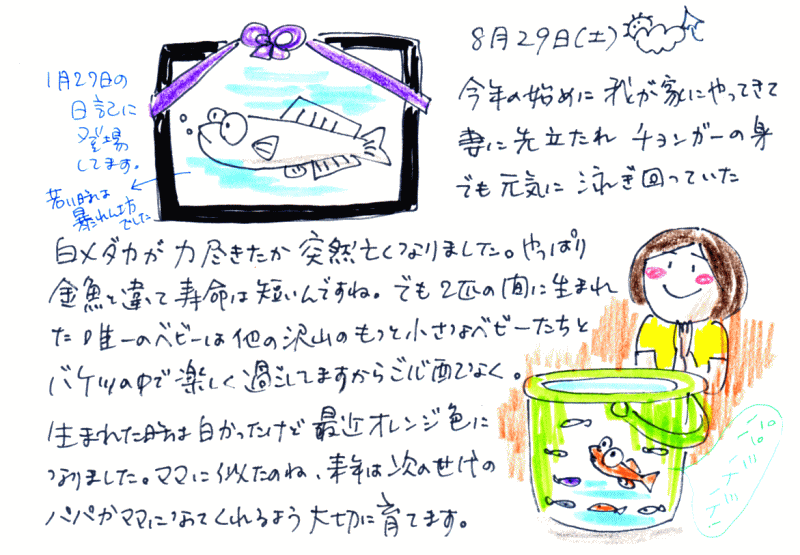 8月29日(土)
1月27日の
日記に
登場
してます。
若い時は
暴れん坊
でした
今年の始めに 我が家にやってきて
妻に先立たれ チョンガーの身
でも元気に 泳ぎ回っていた
白メダカが 力尽きたか 突然亡くなりました。やっぱり
金魚と違って 寿命は短いんですね。でも2匹の間に生まれ
た唯一のベビーは他の沢山のもっと小さなベビーたちと
バケツの中で楽しく過ごしてますからご心配なく。
生まれた時は白かったけど 最近オレンジ色に
なりました。ママに似たのね、来年は次の世代の
パパかママになってくれるよう大切に育てます。